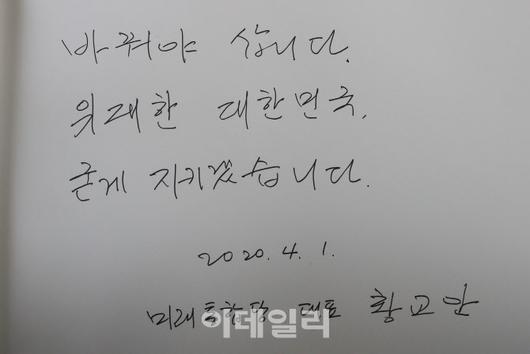 바꿔야 삽니다.
위대한 대한민국,
굳게 지키겠습니다.
2020. 4. 1.
미래통합당 대표 황교안
이데일리